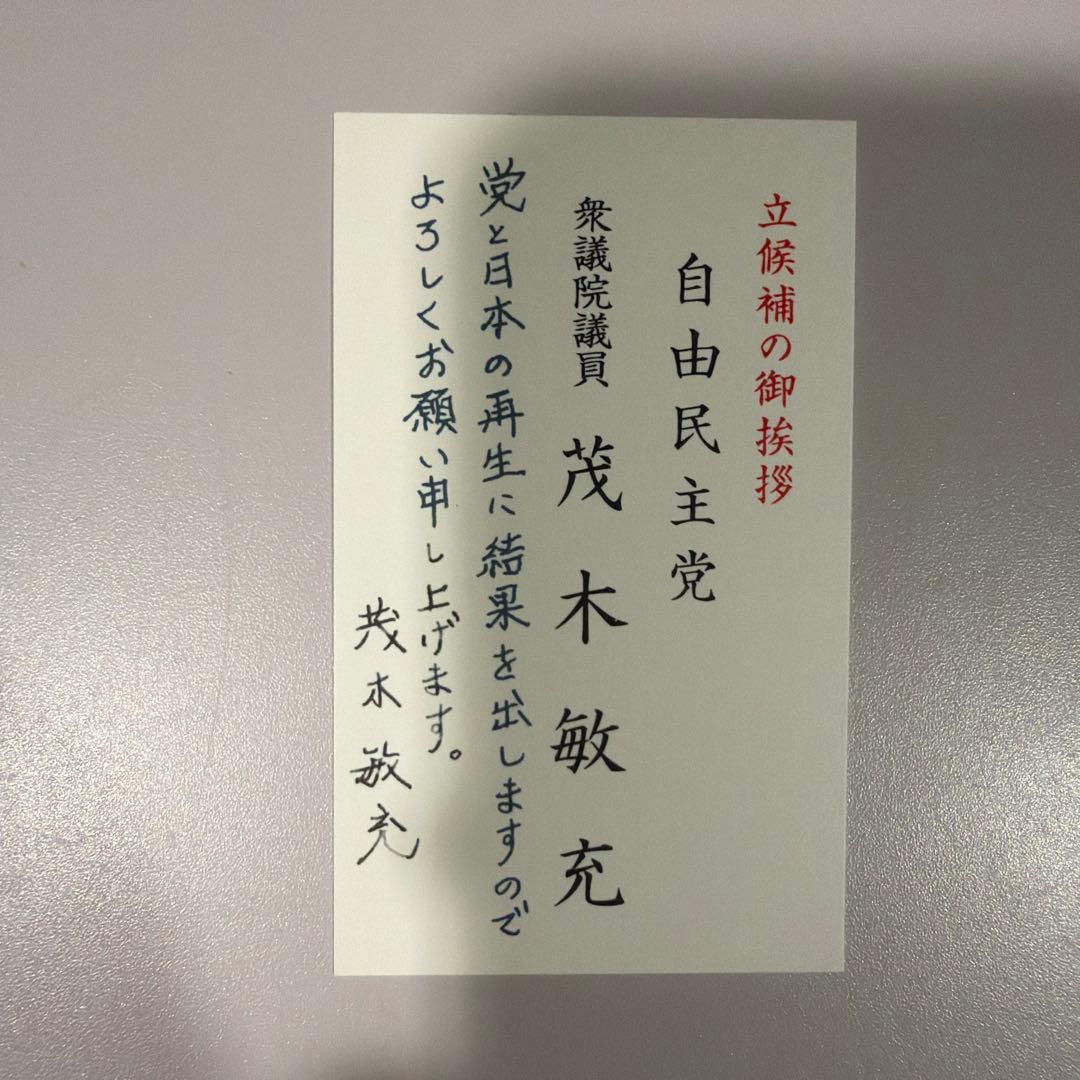 立候補の御挨拶
自由民主党
衆議院議員 茂木敏充
党と日本の再生に結果を出しますので
よろしくお願い申し上げます。
茂木敏充